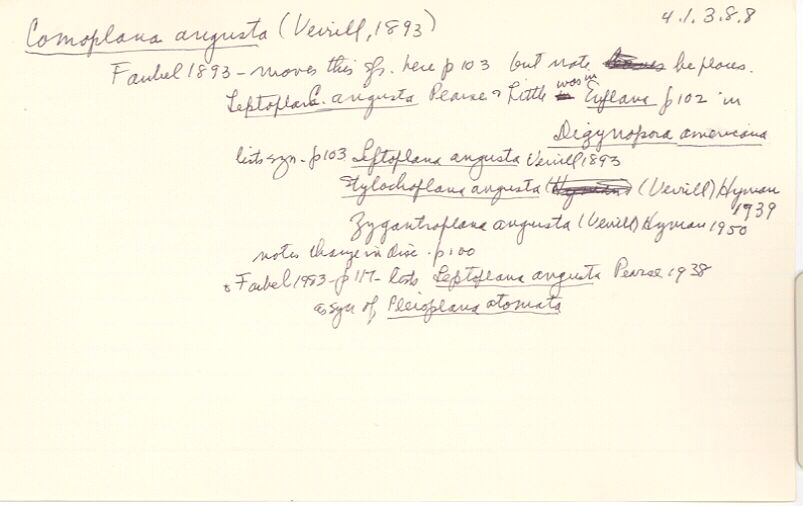 4.1.3.8.8
Comoplana angusta (Verrill, 1893)
Faubel 1893 - moves this sp. here p 103 but note he places.
Leptoplana angusta Pearse & Little was in Euplana p 102 in
Digynopora americana
lists syn. - p 103 Leptoplana angusta Verrill 1893
Stylochoplana angusta (Verrill) Hyman
1939
Zygantroplana angusta (Verrill) Hyman 1950
notes change in disc. p 100
& Faubel 1983 - p 117 - lists Leptoplana angusta Pearse 1938
as syn of Pleioplana atomata